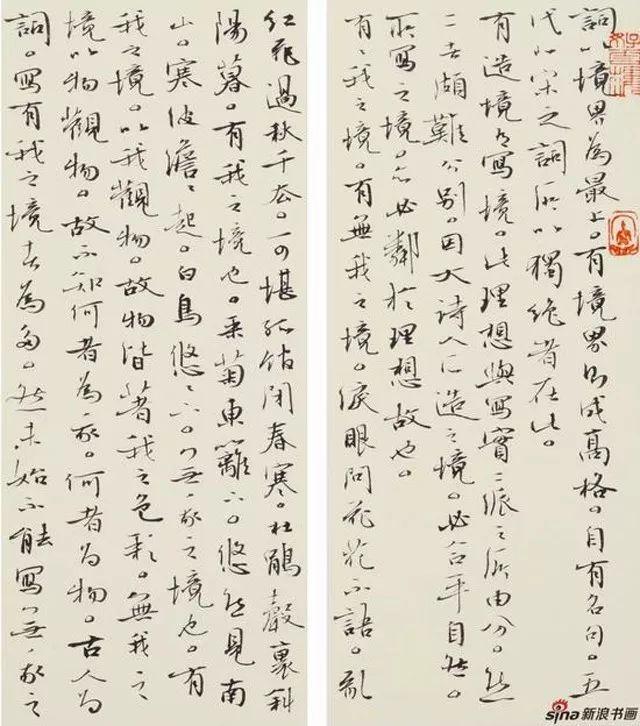 詞以境界為最上。有境界則成高格。自有名句。五
代北宋之詞所以獨絕者在此。
有造境有寫境。此理想與寫實二派之所由分。然
二者頗難分別。因大詩人所造之境。必合乎自然。
所寫之境。亦必鄰於理想故也。
有我之境。有無我之境。淚眼問花花不語。亂
紅飛過秋千去。可堪孤館閉春寒。杜鵑聲裏斜
陽暮。有我之境也。采菊東籬下。悠然見南
山。寒波澹〻起。白鳥悠〻下。無我之境也。有
我之境。以我觀物。故物皆著我之色彩。無我之
境以物觀物。故不知何者為我。何者為物。古人為
詞。寫有我之境者為多。然未始不能寫無我之
sina 新浪书画